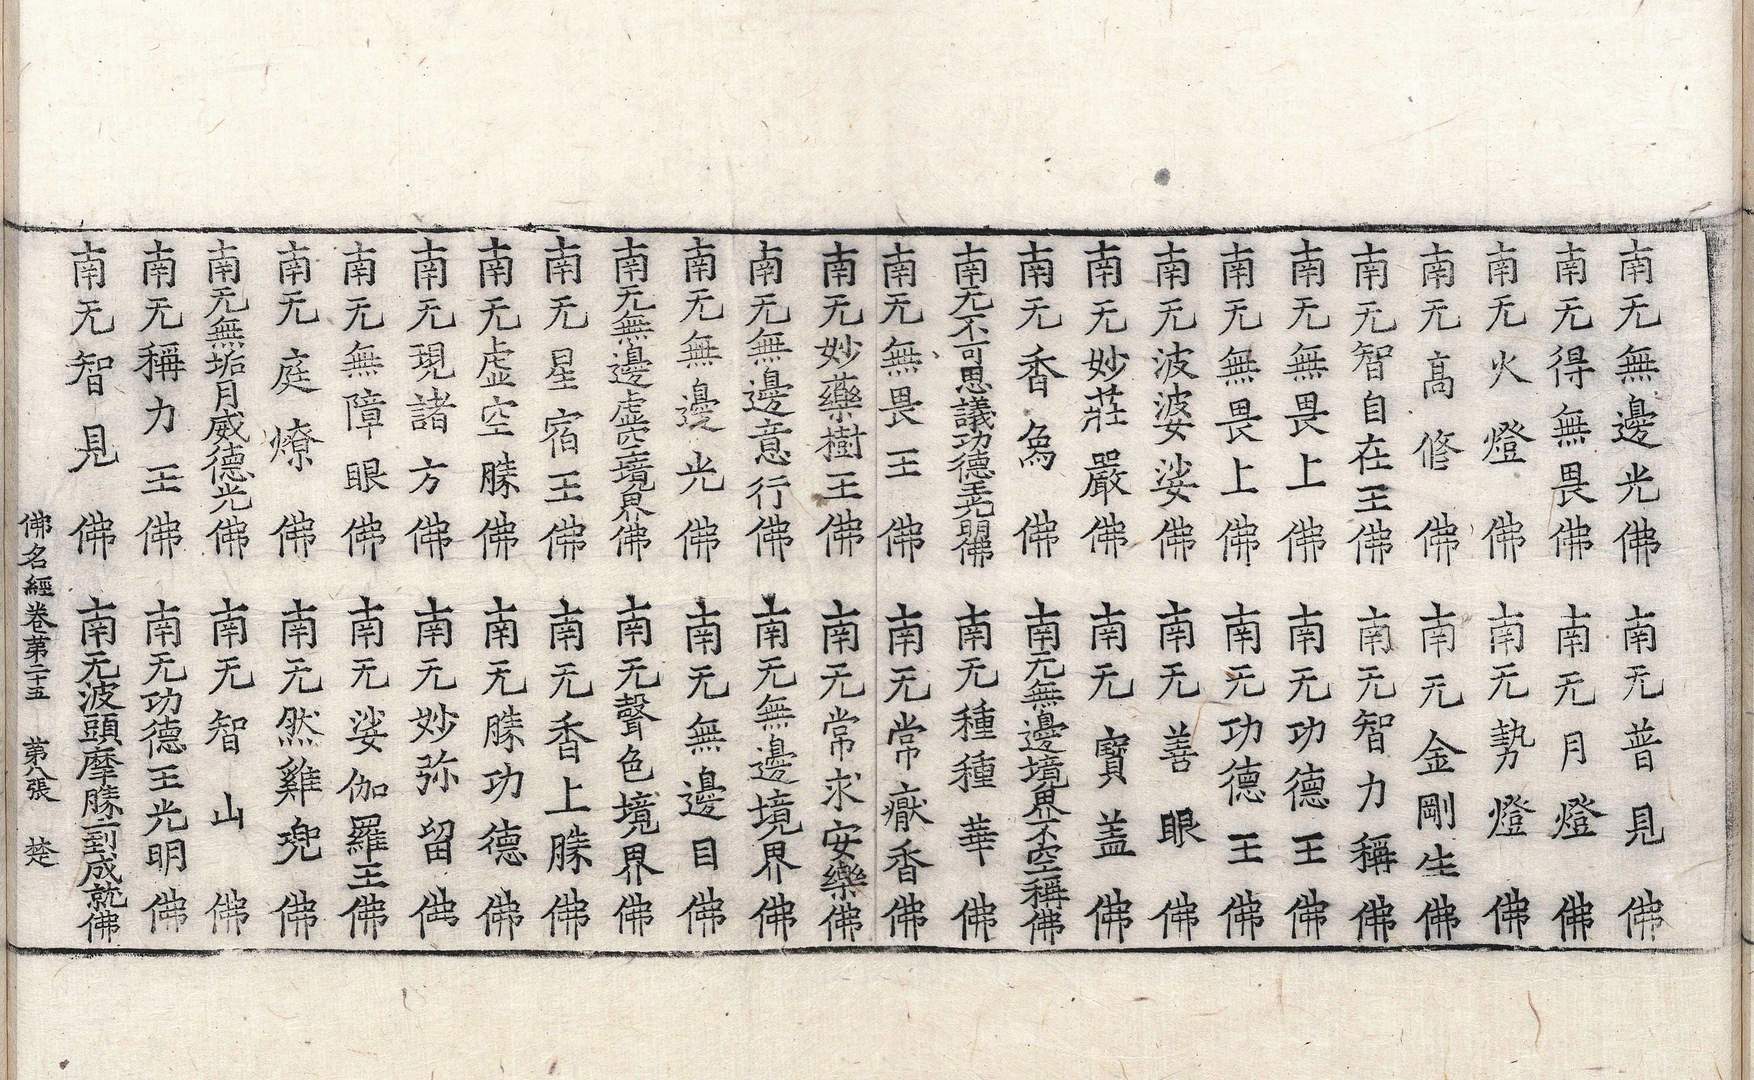 南无無邊光佛　南无普見佛
南无得無畏佛　南无月燈佛
南无火燈佛　南无勢燈佛
南无髙修佛　南无金剛生佛
南无智自在王佛　南无智力稱佛
南无無畏上佛　南无功德王佛
南无無畏上佛　南无功德王佛
南无波婆娑佛　南无善眼佛
南无妙莊嚴佛　南无寶盖佛
南无香為佛　南无無邊境界不空稱佛
南无不可思議功德王光明佛　南无種種華佛
南无無畏王佛　南无常香佛
南无妙藥樹王佛　南无常求安樂佛
南无無邊意行佛　南无無邊境界佛
南无無邊光佛　南无無邊目佛
南无無邊虛空境界佛　南无聲色境界佛
南无星宿王佛　南无香上勝佛
南无虛空勝佛　南无勝功德佛
南无現諸方佛　南无妙弥留佛
南无無障眼佛　南无娑伽羅王佛
南无庭燎佛　南无然雞兜佛
南无無垢月威德光佛　南无智山佛
南无稱力王佛　南无功德王光明佛
南无智見佛　南无波頭摩勝王到成就佛
佛名經卷苐二十五　苐八張　楚